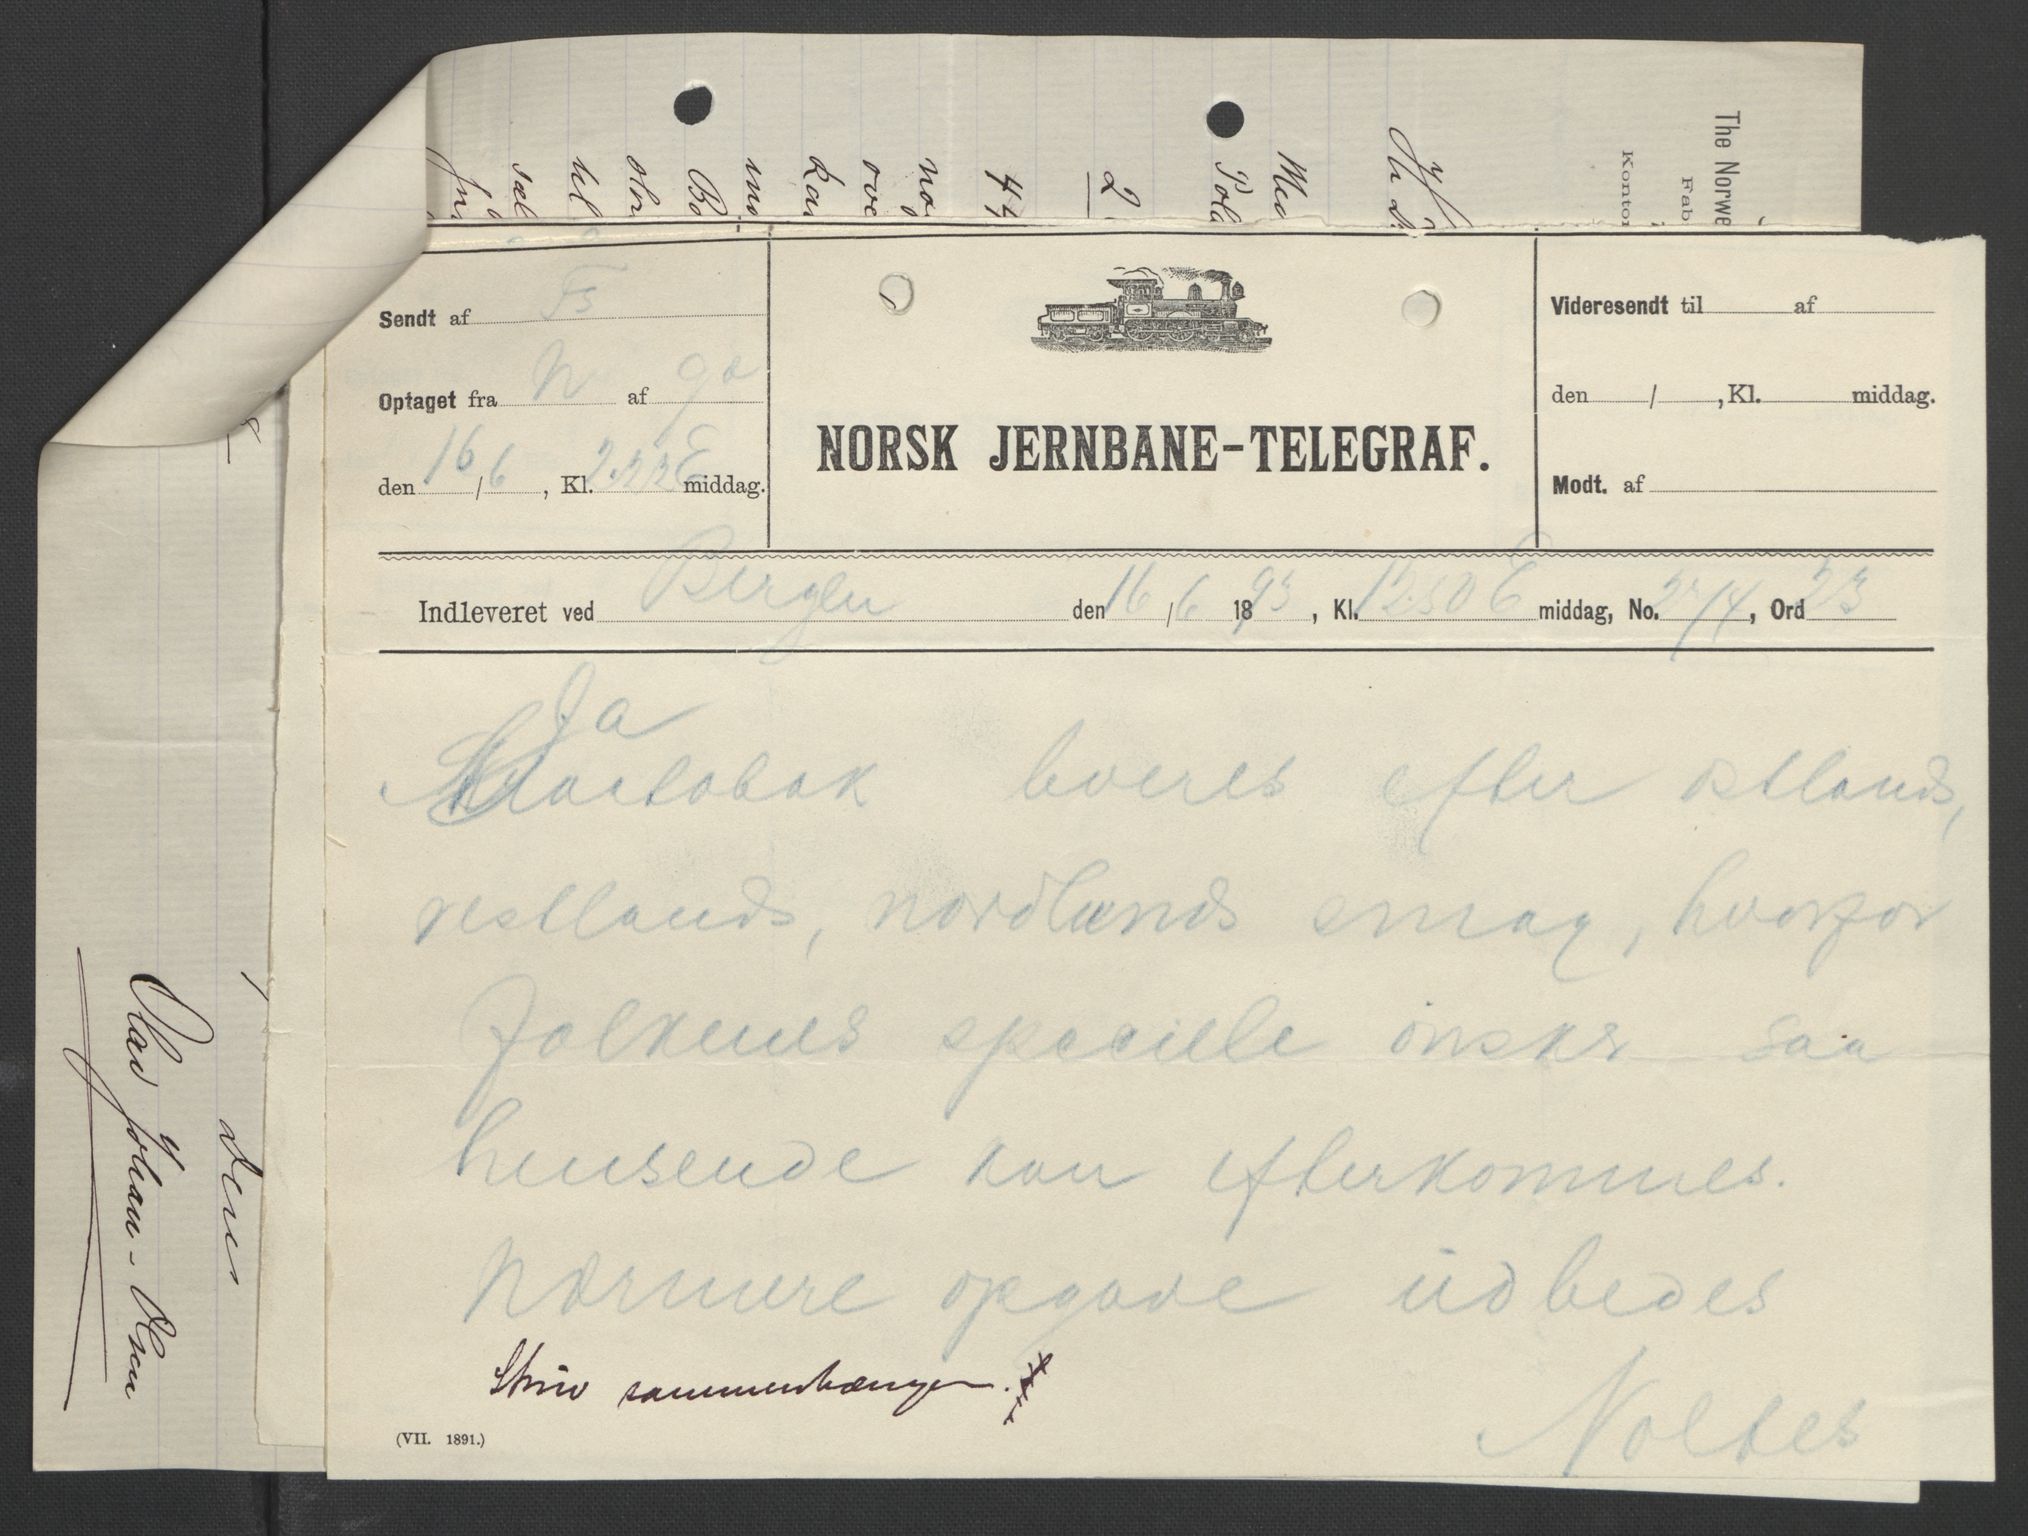 The Norwe
Fab
Kontor
Med
Pola
2
44
no
ove
kan
mo
Bo
hel
sæl
Sendt af Fs
Optaget fra N af go
den 16/6, Kl. 2.22 E middag.
NORSK JERNBANE-TELEGRAF.
Videresendt til af
den / , Kl. middag.
Modt. af
Indleveret ved Bergen den 16/6 1893, Kl. 12.50 E middag, No. 2714, Ord 23
Ja
Skraatobak leveres efter østlands,
vestlands, nordlands smag, hvorfor
folkenes specielle ønsker saa
henseende kan efterkommes.
Nærmere opgave udbedes
Noltes
Skriv sammenhængen.
(VII. 1891.)
den
Olav Johan-Olsen